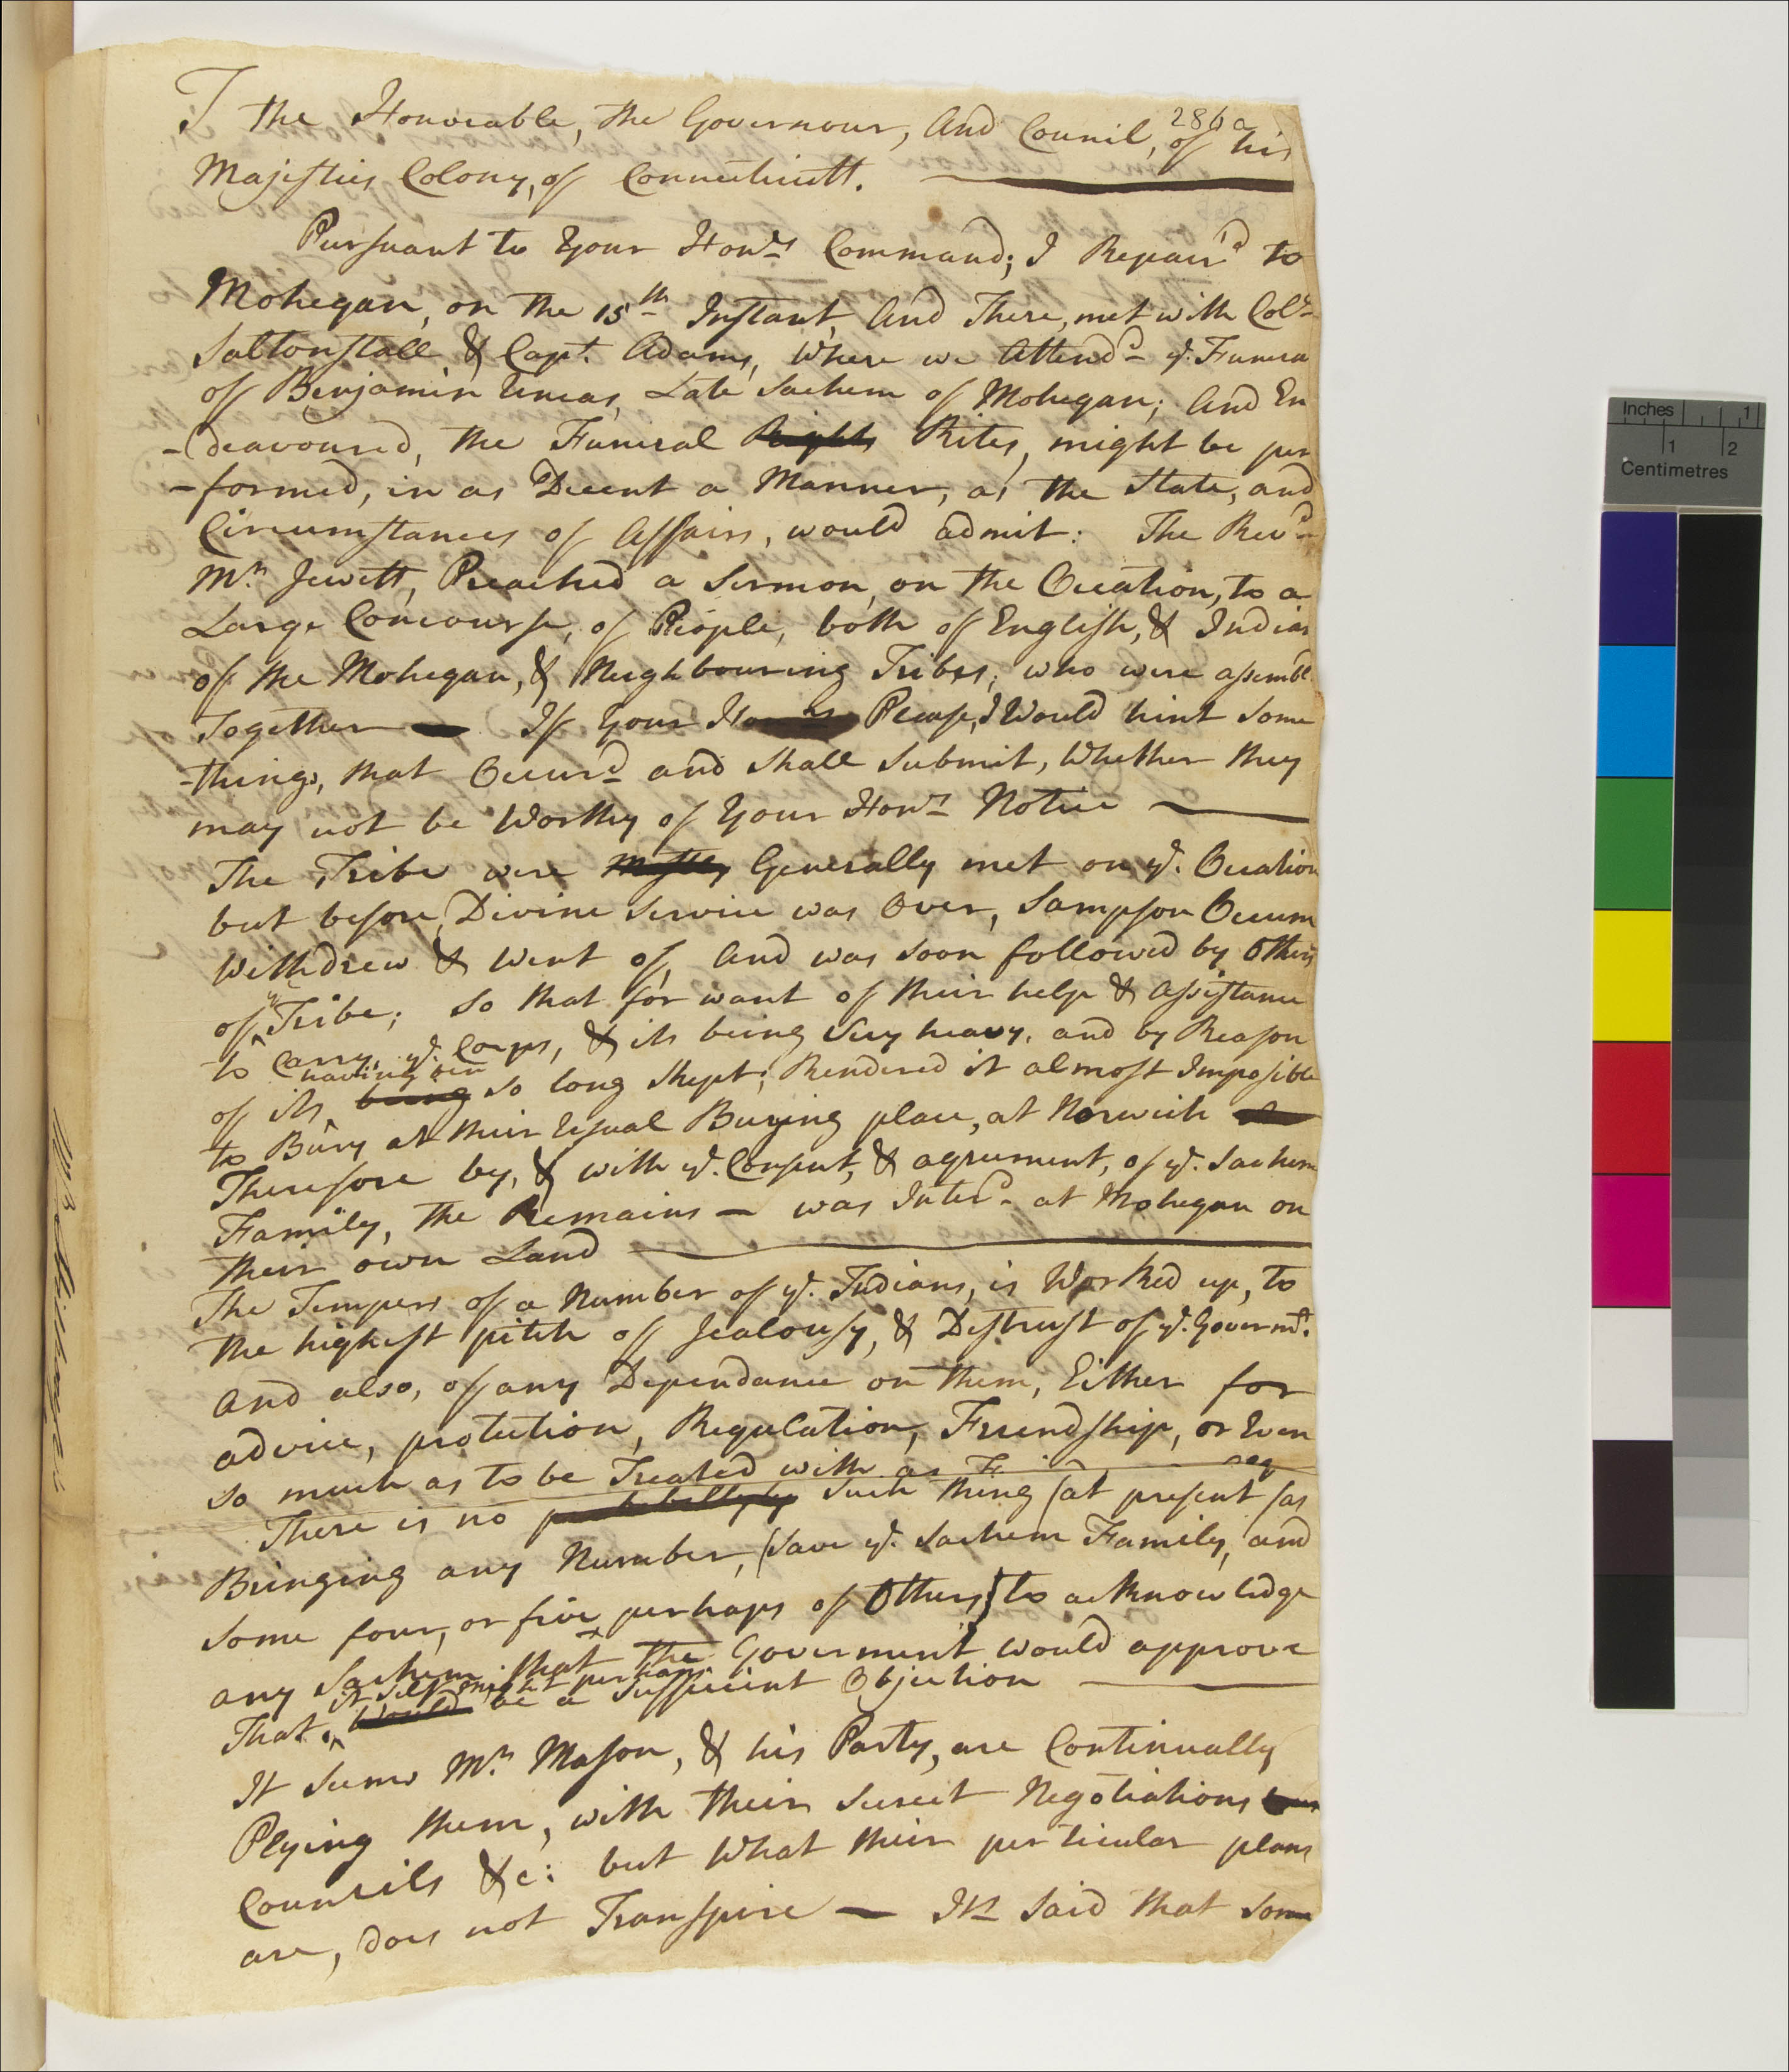 286a
T the Honorable, the Governour, And Council, of his
Majesties Colony, of Connecticutt.
Pursuant to Your Honrs Command; I Repair'd to
Mohegan, on the 15th Instant, And There, met with Colo
Saltonstall & Capt. Adams, Where we Attendd ye. Funera
of Benjamin Uncas, Late Sachem of Mohegan; And En
-deavoured, the Funeral Rights Rites, might be per
-formed, in as Decent a Manner, as the State, and
Circumstances of Affairs, would admit: The Revd
Mr. Jewett, Preached a Sermon, on the Occation, to a
Large Concourse, of People, both of English, & Indian
of the Mohegan, & Neighbouring Tribes, who were assembl
Together — If Your Please, I Would hint some
-things, that Occurd and shall Submit, Whether they
may not be Worthy of Your Honrs Notice —
The Tribe were Mostly Generally met on ye. Occation
but before Divine Service was Over, Sampson Occum
Withdrew & Went of, And was soon followed by Others
of ye Tribe; So that for want of their help & Assistance
to Carry, ye. Corps, & its being Very heavy, and by Reason
of its being having ben so long Kept; Rendered it almost Imposible
to Bury at their Usual Burying place, at Norwich
Therefore by, & with ye. Consent, & agreement, of ye. Sachem
Family, the Remains — was Interd at Mohegan on
their own Land —
The Tempers of a Number of ye. Indians, is Worked up, to
the highest pitch of Jealousy, & Distrust of ye. Governmt.
And also, of any Dependance on them, Either for
advice, protection, Regulation, Friendship, or Even
so much as to be Treated with as
There is no probabillyty Such thing (at present (as
Bringing any Number, (Save ye. Sachem Family, and
Some four, or five perhaps of Others) to acknowledge
any Sachem that the Goverment would approve
That, it self might perhaps Would be a Sufficient Objection —
It Seems Mr. Mason, & his Party, are Continually
Plying them, with their Secret Negotiations
Councils &c: but What their perticular plans
are, does not Transpire — Its Said that some